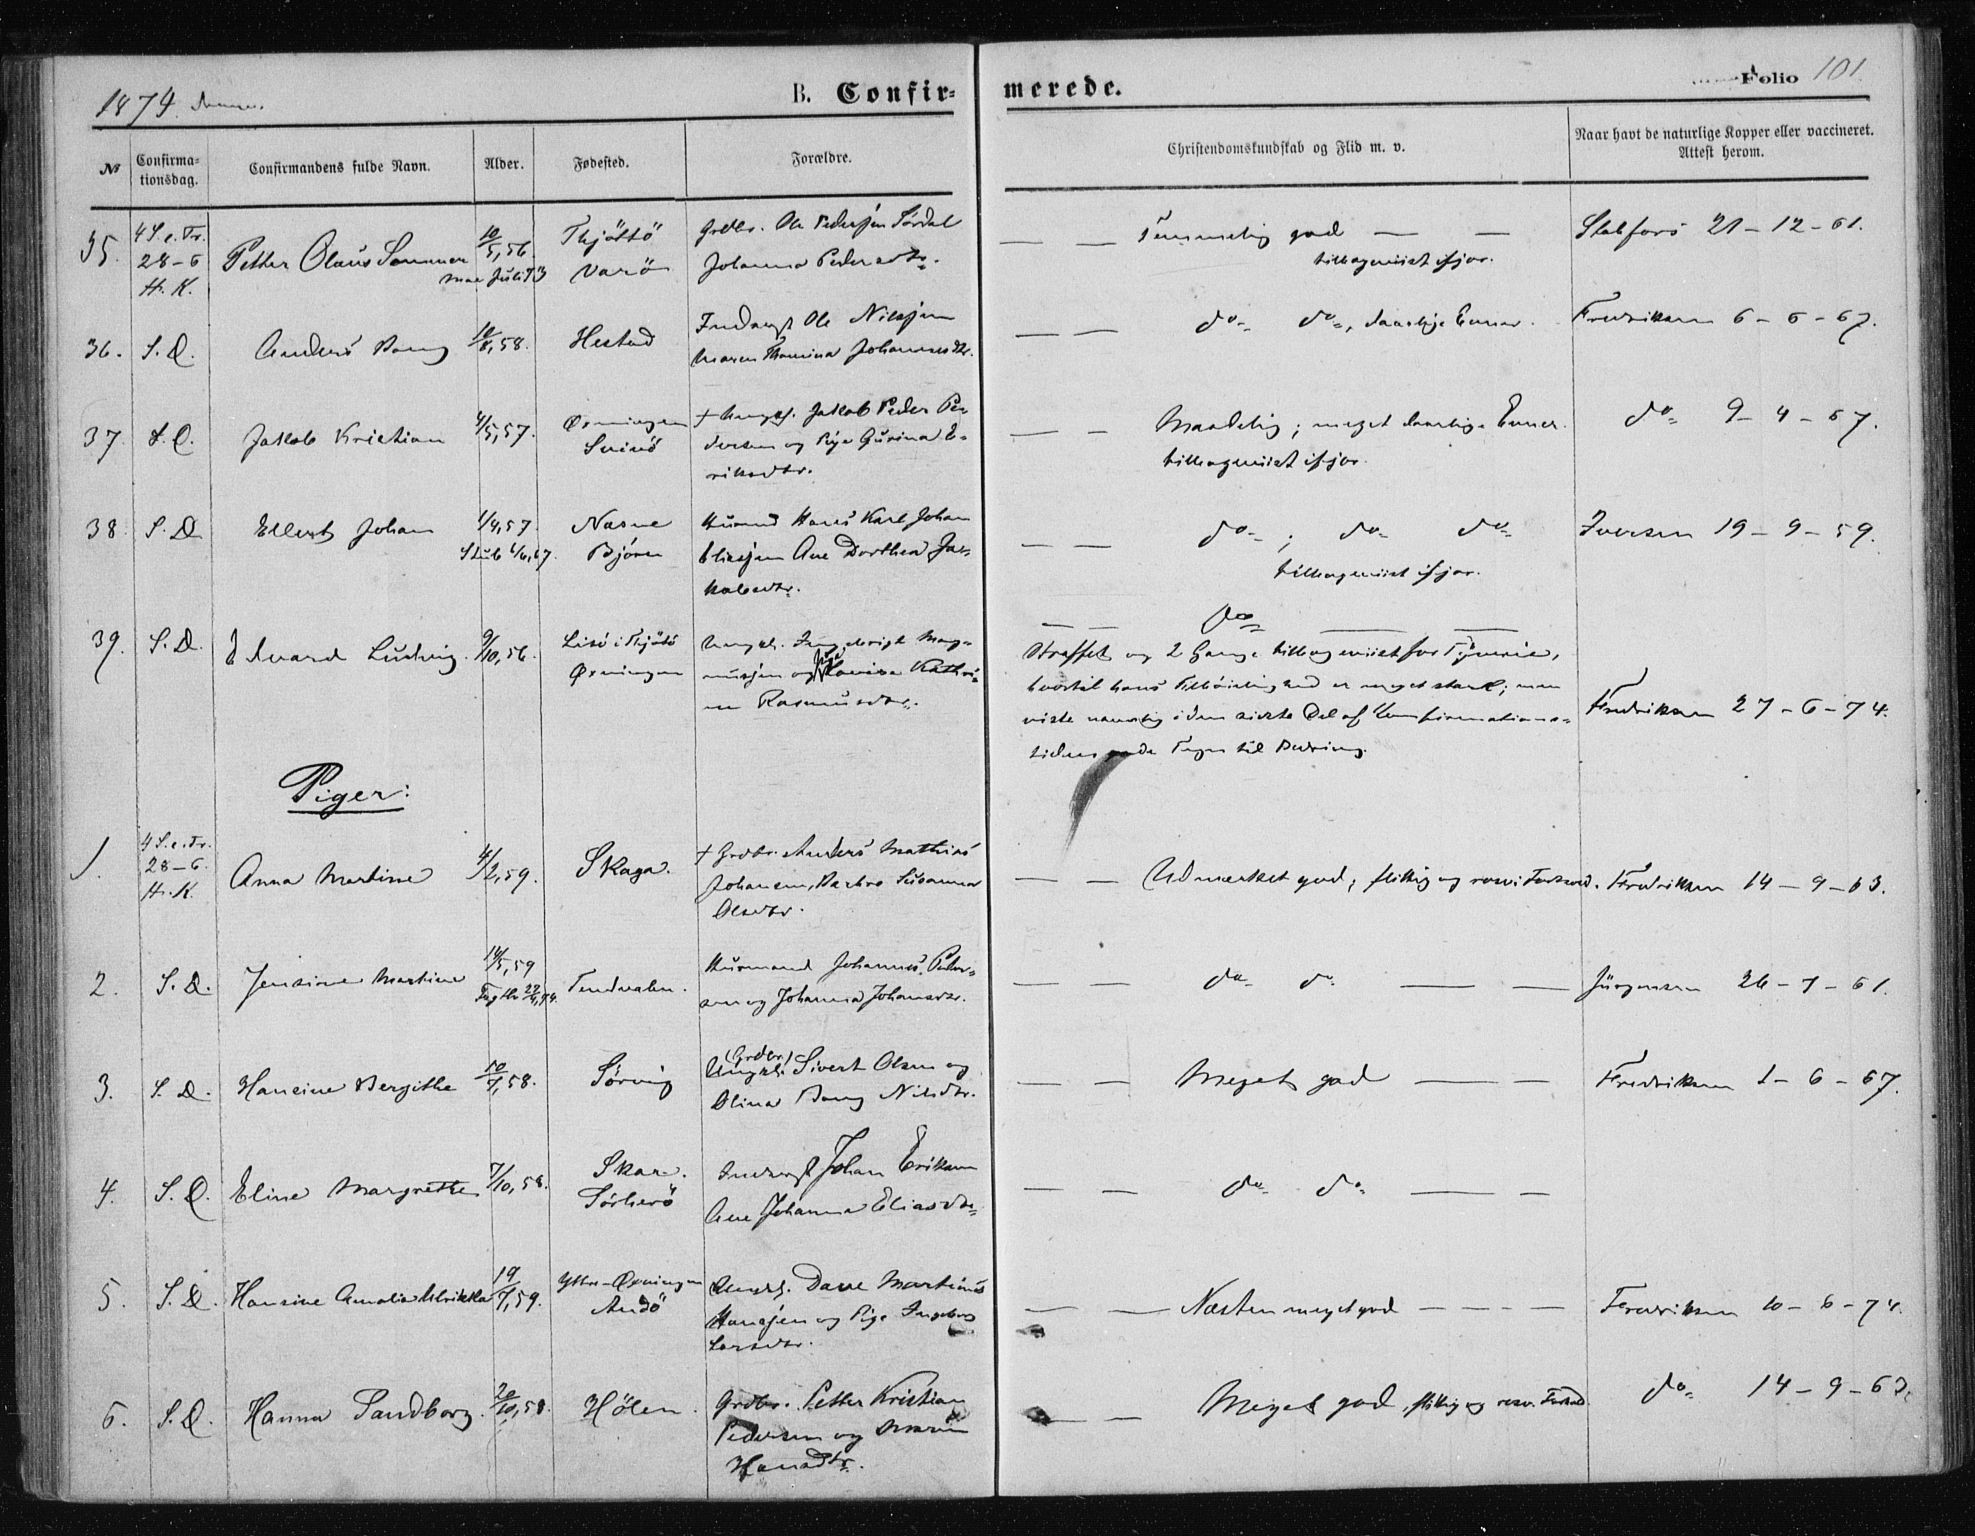 1874.
B. Confir-
merede.
Folio 101.
№
Confirma-
tionsdag.
Confirmandens fulde Navn.
Alder.
Fødested.
Forældre.
Christendomskundskab og Flid m. v.
Naar havt de naturlige Kopper eller vaccineret.
Attest herom.
35.
4 S. e. Tr.
28-6
H. K.
Petter Olaus Sommer
10/5, 56
Thjöttö
Grdbr. Ole Pedersen Sördal
Johanna Pedersdtr.
— — Temmelig god — —
tilbageviist ifjor.
Stabfors 21-12-61.
36. S. D.
Anders Bang
10/8, 58.
Hestad
Inderst Ole Nilsjen
Maren Thomina Johannesdtr.
— — do- do-, daarlige Evner.
Fredriksen 6-6-67.
37. S. D.
Jakob Kristian
4/5, 57.
Öxningen
Svinö
+ Ungk. Jakob Peder Pe-
dersen og Pige Gurina E-
riksdtr.
— — Maadelig; meget daarlige Evner.
tilbageviist ifjor.
do- 9-4-67.
38. S. D.
Ellert Johan
1/4, 57.
Næsne
Bjørn
Husmd Hans Karl Johan
Eliasjen Ane Dorthea Ja-
kobsdtr.
— — do-; do- do-
tilbageviist ifjor.
Iversen 19-9-59.
39. S. D.
Edvard Ludvig.
9/10, 56.
Lisö i Thjötö
Öxningen
Ungk. Ingebrigt Mag-
nusjen og Pige Lovise Kathri-
ne Rasmusdtr.
— — do- — —
Straffet og 2 Gange tilbageviist for Tyverie,
hvortil hans Tilbøielighed er meget stærk; men
viste navnlig i den sidste Del af Confirmations-
tiden gode Tegn til Bedring.
Fredriksen 27-6-74.
Piger:
1.
4 S. e. Tr.
28-6.
H. K.
Anna Martine
4/2, 59.
Skaga.
+ Grdbr. Anders Mathias
Johansen, Barbro Susanna
Olsdtr.
— — Udmærket god; flittig og rosv. Forhold.
Fredriksen 14-9-63.
2. S. D.
Jensine Martine
14/5, 59
Tendnalen.
Husmand Johannes Peder-
sen og Johanna Johansdtr.
— — do- do- — —
Jürgensen 26-7-61.
3. S. D.
Hansine Bergithe
10/7, 58.
Sörvig
(Grdbr.)
Ungk. Sivert Olsen og
Olina Bang Nilsdtr.
— — Meget god — —
Fredriksen 1-6-67.
4. S. D.
Eline Margrethe
7/10, 58.
Skar.
Sörherö
Inderst Johan Eriksen
Ane Johanna Eliasdtr.
— — do- do- — —
5. S. D.
Hansine Amalia Ulrikka
19/7, 59.
Ytre-Öxningen
Andö
Ungk. Dave Martinus
Hansjen og Pige Ingebor
Larsdtr.
— — Næsten meget god — — — —
Fredriksen 10-6-74.
6. S. D.
Hanna Sandborg.
20/10, 58.
Hölen.
Grdbr. Petter Kristian
Pedersen og Maren
Hansdtr.
— — Meget god, flittig og rosv. Forhold
do- 14-9-63.